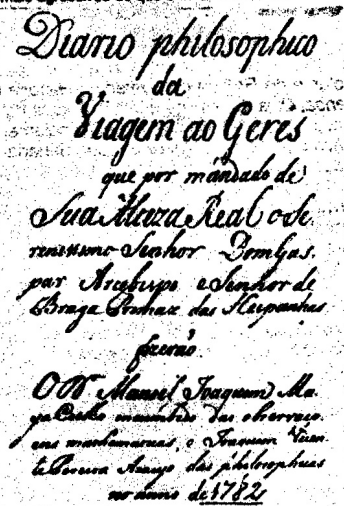 Diario philosophico
da
Viagem ao Geres
que por mandado de
Sua Alteza Real o Se-
renissimo Senhor Dom Gas-
par Arcebispo e Senhor de
Braga Primaz das Hespanhas
fizerão
O Dr Manoel Joaquim Ma-
ya Coelho incumbido das observaço-
ens mathematicas, e Joaquim Vicen-
te Pereira Araujo das philosophicas
no anno de 1782